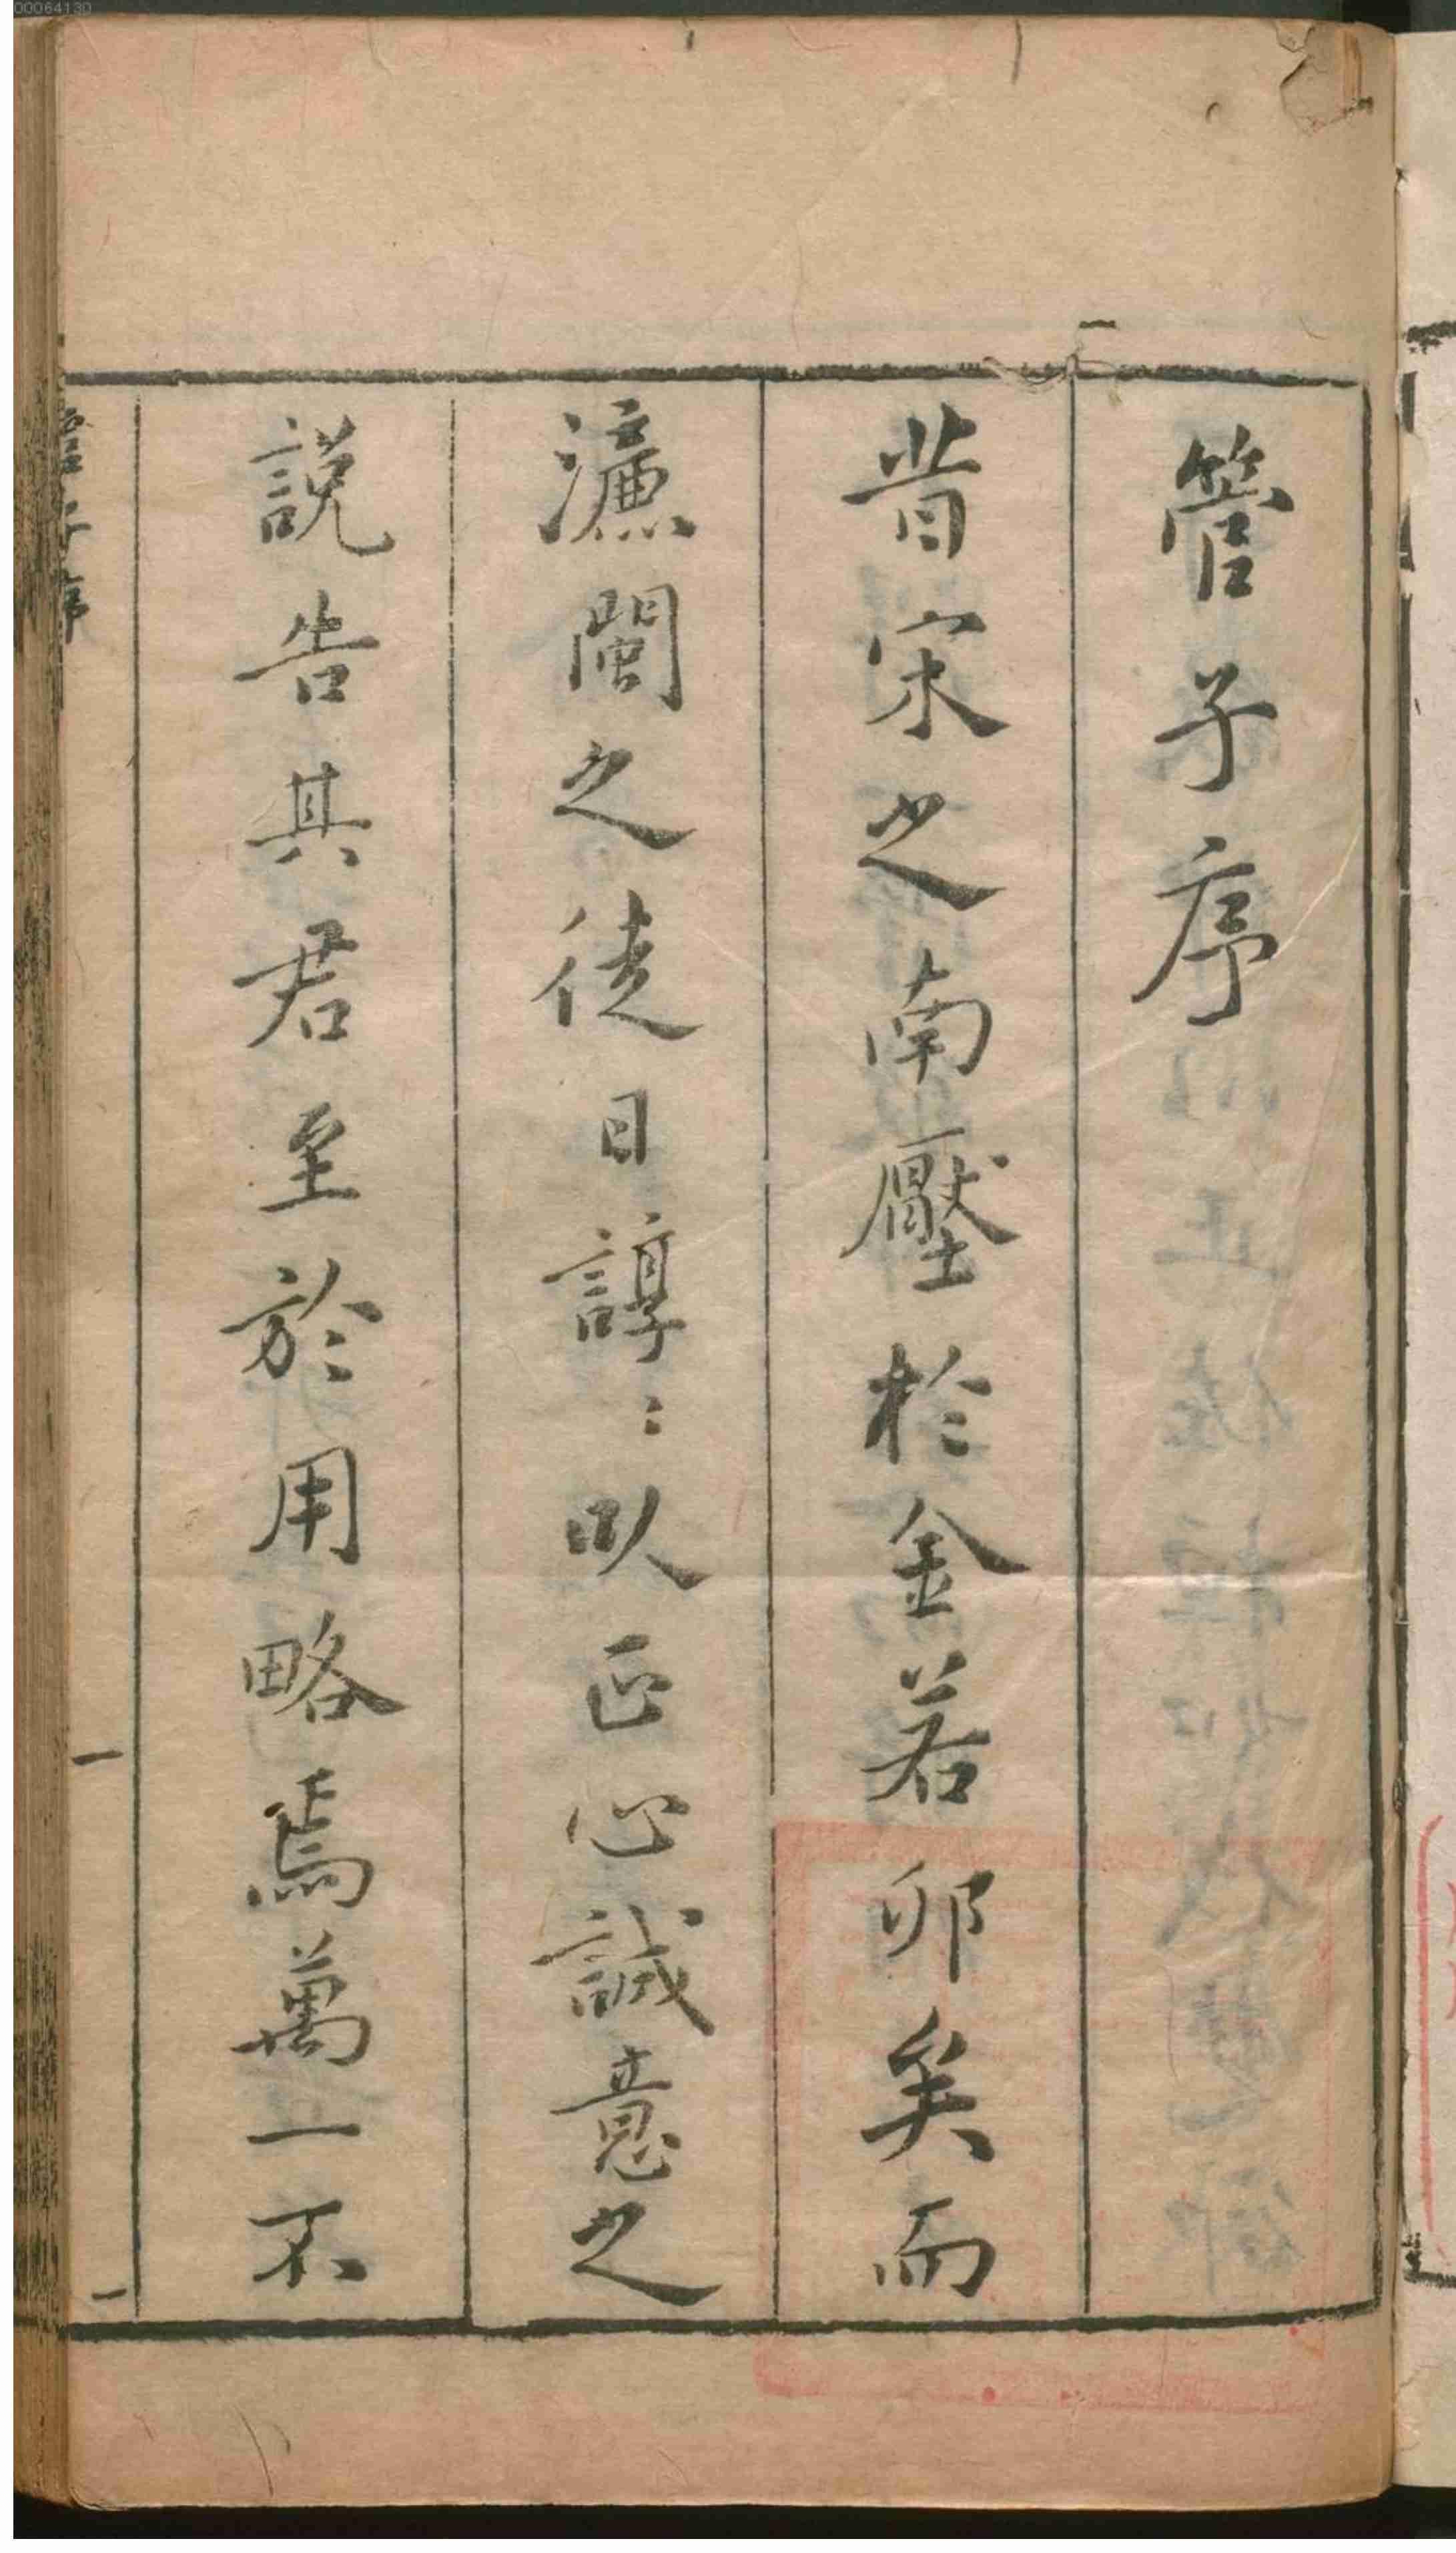 00064130
管子序
昔宋之南壓於金若卵矣而
濂閩之徒日諄〻以正心誠意之
說告其君至於用略焉萬一不
管子序
一